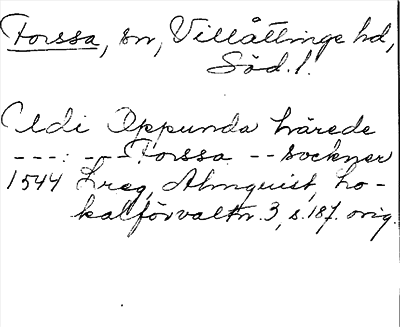 Forssa, sn, Villåttinge hd,
Söd. l.
Udi Oppunda härede
---: --- Forssa -- sockner
1544 Lreg, Almquist, Lo-
kalförvaltn. 3, s. 187. orig.